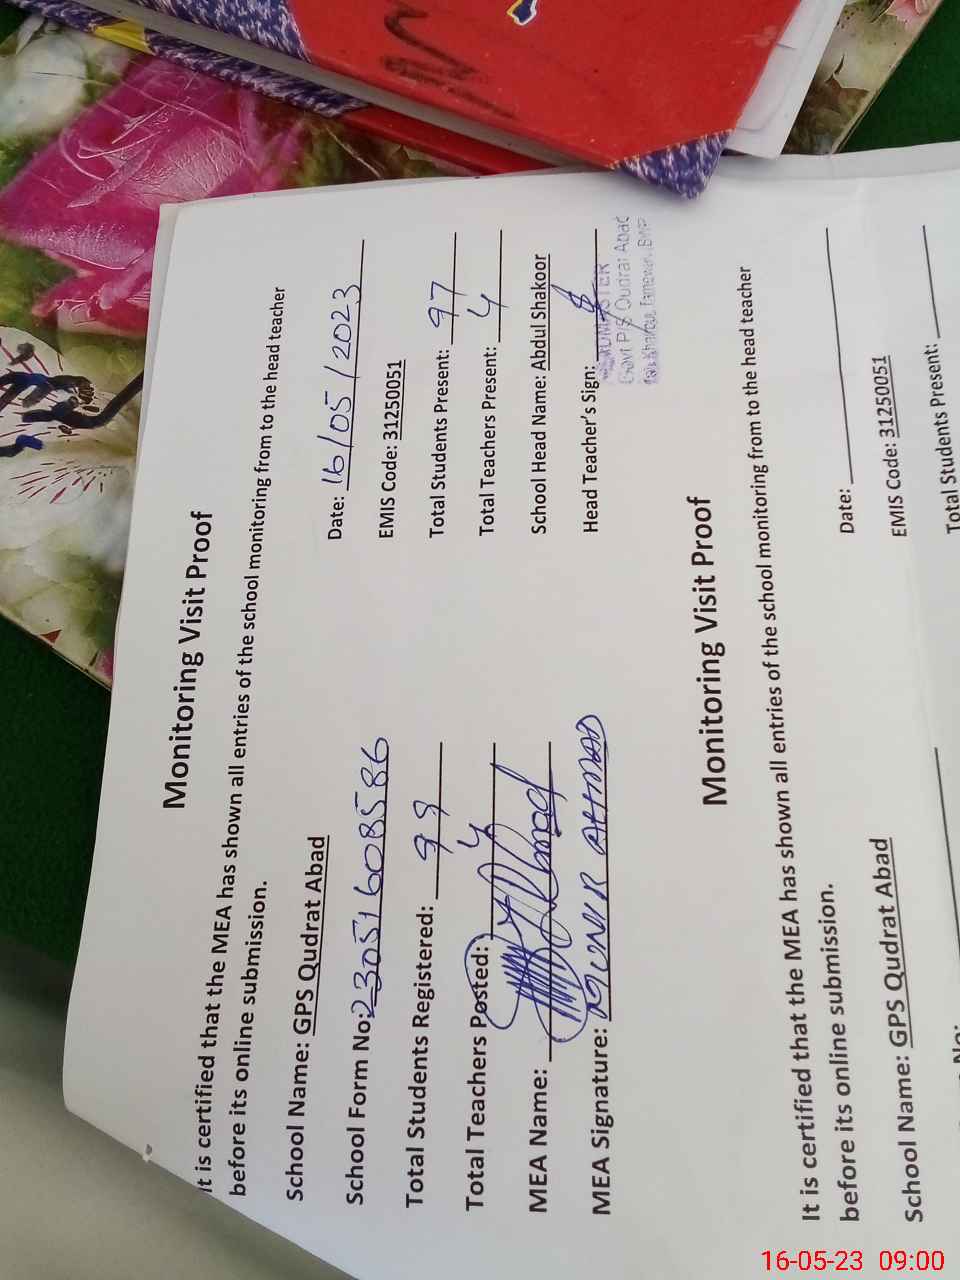 Monitoring Visit Proof
It is certified that the MEA has shown all entries of the school monitoring from to the head teacher
before its online submission.
Date: 16/05/2023
School Name: GPS Qudrat Abad
EMIS Code: 31250051
School Form No: 23051608586
Total Students Present: 97
Total Students Registered: 99
Total Teachers Present: 4
Total Teachers Posted: 4
School Head Name: Abdul Shakoor
MEA Name:
Head Teacher's Sign:
MEA Signature: MUNIR AHMAD
Govt P/S Qudrat Abad
Monitoring Visit Proof
It is certified that the MEA has shown all entries of the school monitoring from to the head teacher
before its online submission.
Date:
School Name: GPS Qudrat Abad
EMIS Code: 31250051
Total Students Present:
No:
16-05-23 09:00